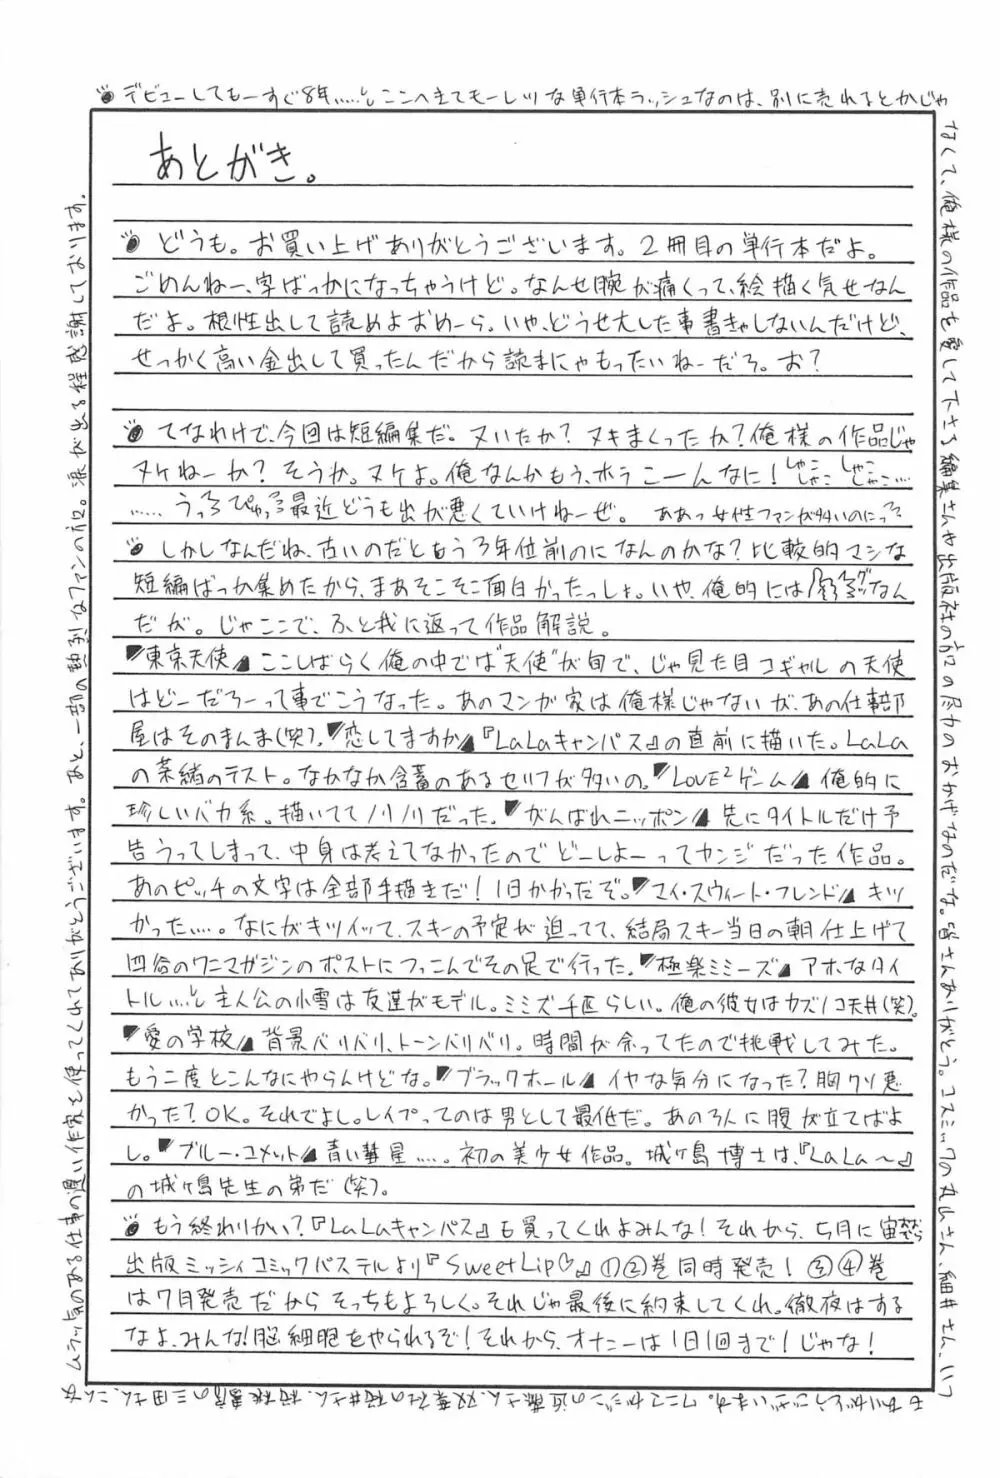 デビューしてもーすぐ8年……ここへきてモーレツな単行本ラッシュなのは、別に売れるとかじゃ
なくて、俺様の作品を愛して下さる編集さんや出版社の方々の尽力のおかげなのだな。皆さんありがとう。コスミックの丸山さん、細井さん、いつ
もありがとうございます。ワニマガジンの近藤さん、双葉社の桜井さん、桜桃書房の三田さん、こんな
ムラッ気のある仕事の遅い作家を使ってくれてありがとうございます。あと、一部の熱烈なファンの方々。涙が出る程感謝しております。
あとがき。
どうも。お買い上げありがとうございます。2冊目の単行本だよ。
ごめんねー、字ばっかになっちゃうけど。なんせ腕が痛くって、絵描く気せなん
だよ。根性出して読めよおめーら。いや、どうせ大した事書きゃしないんだけど、
せっかく高い金出して買ったんだから読まにゃもったいねーだろ。お?
てなわけで、今回は短編集だ。ヌいたか?ヌキまくったか?俺様の作品じゃ
ヌケねーか?そうか。ヌケよ。俺なんかもう、ホラこーんなに!しゃこしゃこしゃこじゃこ…
……うっぴゅっ最近どうも出が悪くていけねーぜ。ああっ女性ファンが多いのにっ
しかしなんだね、古いのだともう3年位前のになんのかな?比較的マシな
短編ばっか集めたから、まあそこそこ面白かったっしょ。いや、俺的にはなん
だが。じゃここで、ふと我に返って作品解説。
「東京天使」ここしばらく俺の中では"天使"が旬で、じゃ見た目コギャルの天使
はどーだろーって事でこうなった。あのマンガ家は俺様じゃないが、あの仕事部
屋はそのまんま(笑)。「恋してますか」『LaLaキャンパス』の直前に描いた。LaLa
の茶緒のテスト。なかなか含蓄のあるセリフが多いの。「LOVE²ゲーム」俺的に
珍しいバカ系。描いててノリノリだった。「がんばれニッポン」先にタイトルだけ予
告うってしまって、中身は考えてなかったのでどーしよーってカンジだった作品。
あのピッチの文字は全部手描きだ!1日かかったぞ。「マイ・スウィート・フレンド」キツ
かった…。なにがキツイッて、スキーの予定が迫ってて、結局スキー当日の朝仕上げて
四谷のワニマガジンのポストにつっこんでその足で行った。「極楽ミミーズ」アホなタイ
トル…主人公の小雪は友達がモデル。ミミズ千匹らしい。俺の彼女はカズノコ天井(笑)。
「愛の学校」背景バリバリ、トーンバリバリ。時間が余ってたので挑戦してみた。
もう二度とこんなにやらんけどな。「ブラックホール」イヤな気分になった?胸クソ悪
かった?OK。それでよし。レイプってのは男として最低だ。あの3人に腹が立てばよ
し。「ブルー・コメット」青い彗星…。初の美少女作品。城ヶ島博士は、『LaLa〜』
の城ヶ島先生の弟だ(笑)。
もう終わりかい?『LaLaキャンパス』も買ってくれよみんな!それから、5月に宙
出版ミッシィコミックパステルより『Sweet Lip♡』①②巻同時発売!③④巻
は7月発売だからそっちもよろしく。それじゃ最後に約束してくれ。徹夜はする
なよ、みんな!脳細胞をやられるぞ!それから、オナニーは1日1回まで!じゃな!